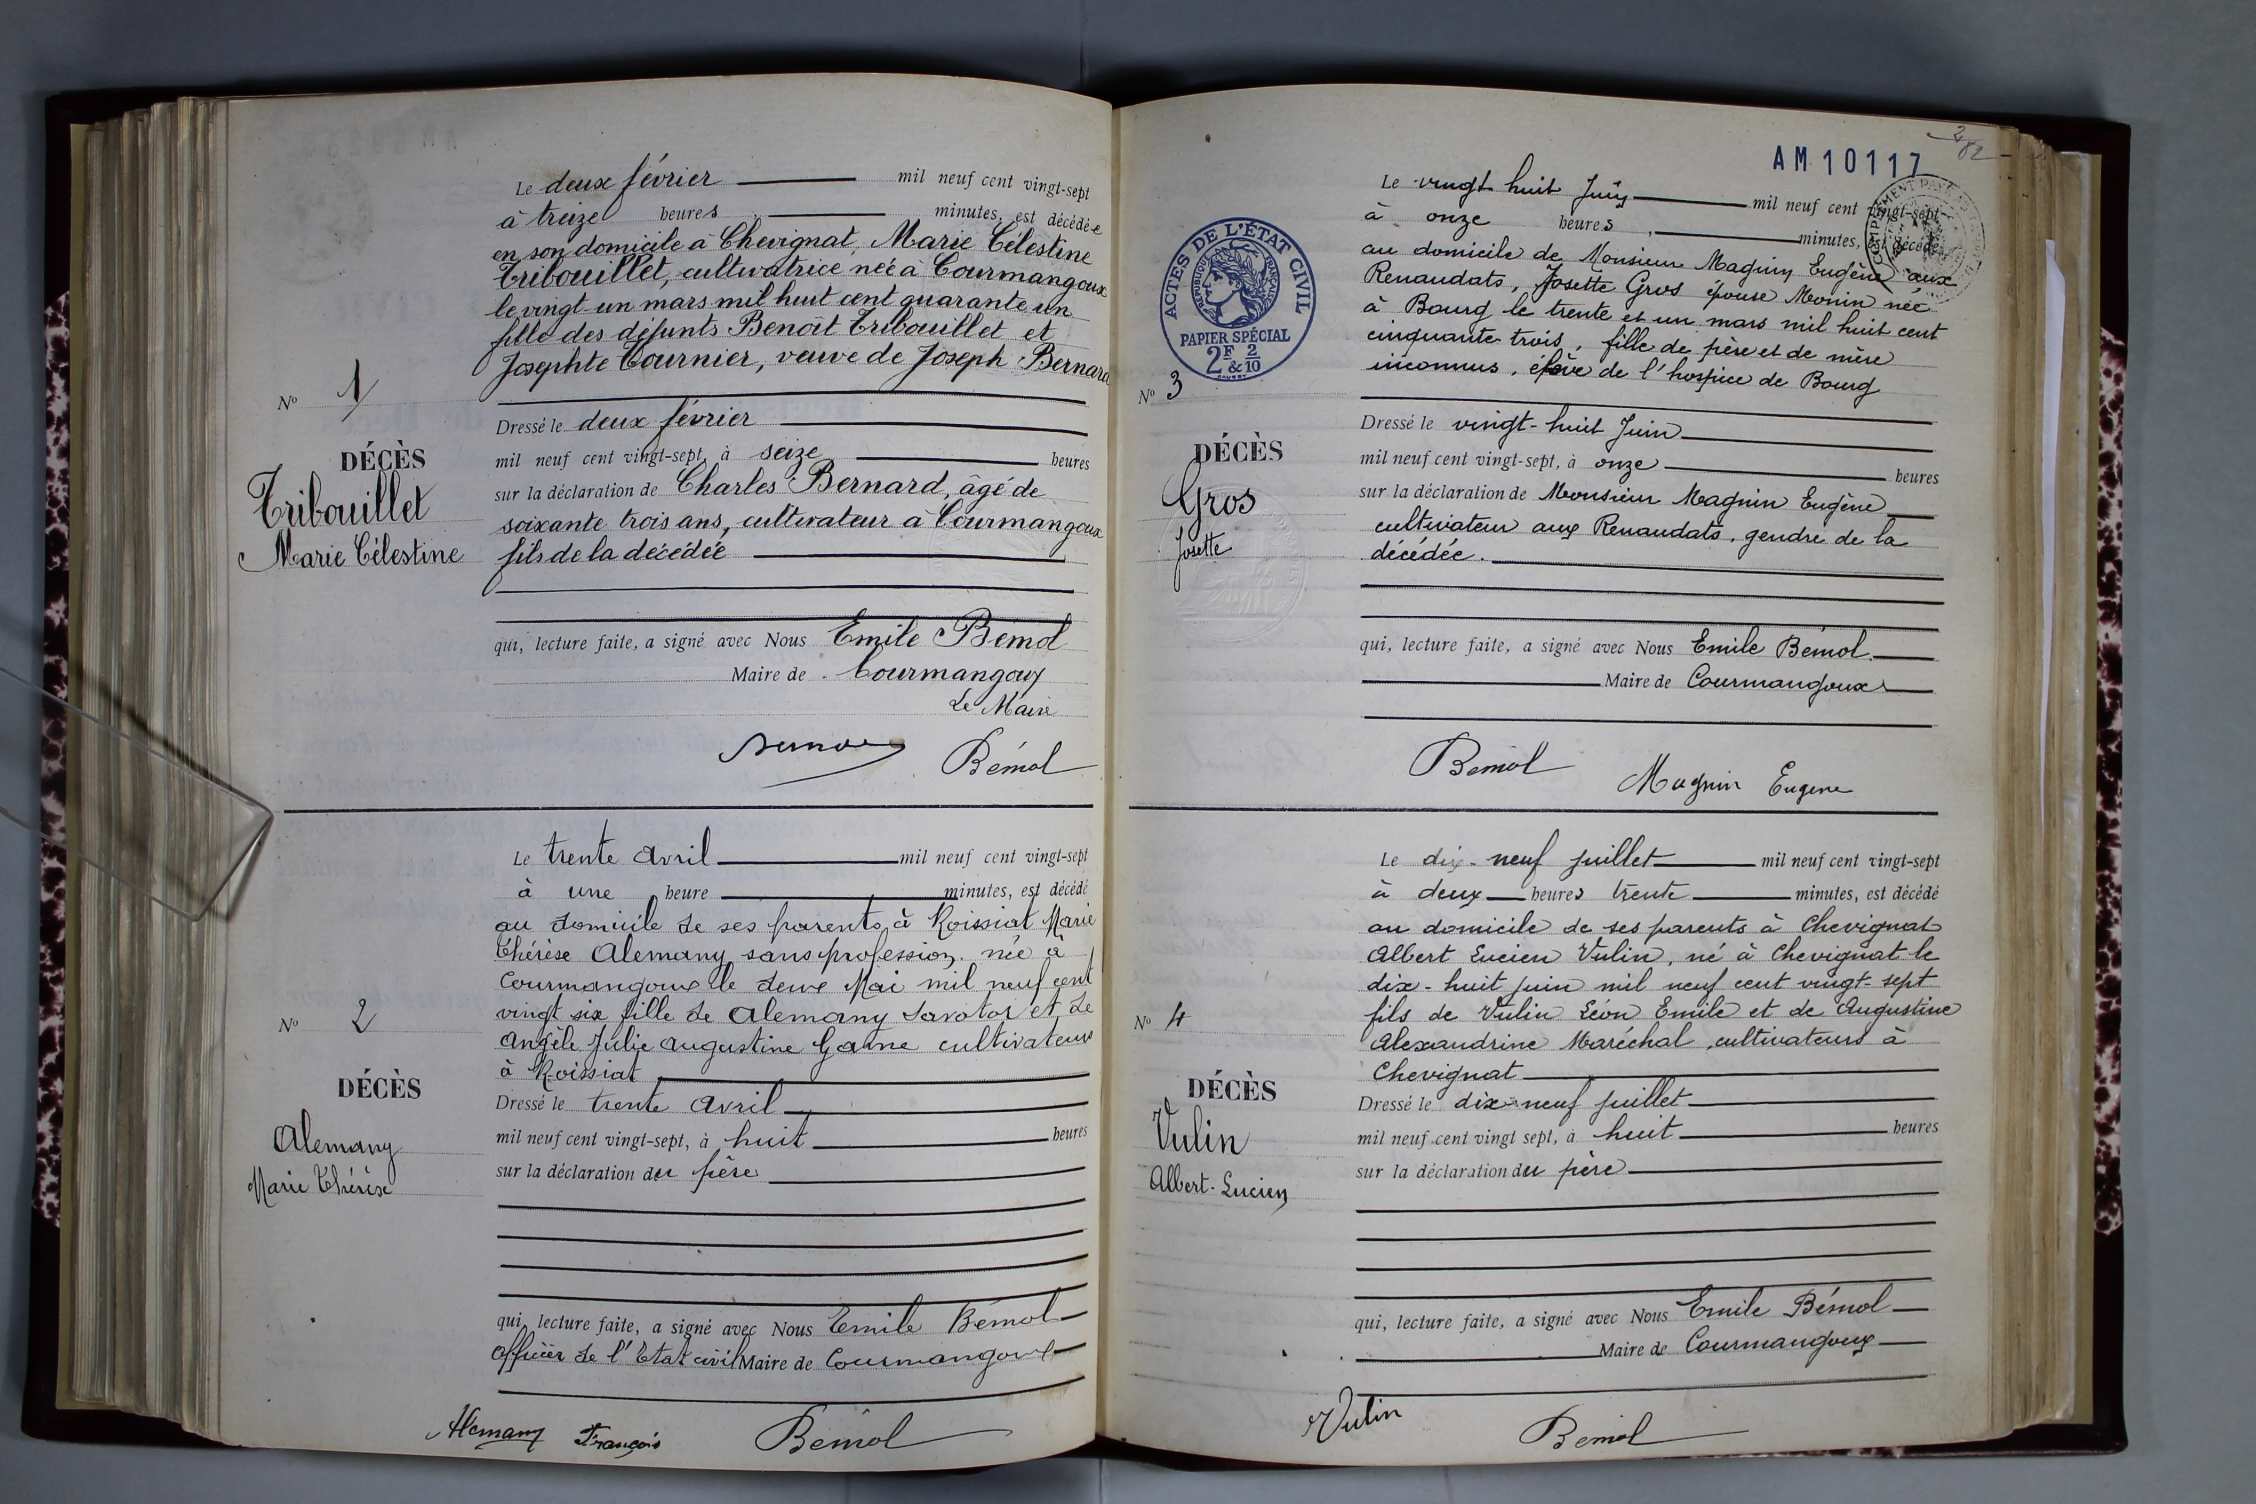 Le deux février mil neuf cent vingt-sept
à treize heures minutes, est décédée
en son domicile à Chevignat, Marie Célestine
Tribouillet, cultivatrice née à Courmangoux
le vingt-un mars mil huit cent quarante un
fille des défunts Benoît Tribouillet et
Josephte Tournier, veuve de Joseph Bernard
N° 1
DÉCÈS
Tribouillet
Marie Célestine
Dressé le deux février
mil neuf cent vingt-sept, à seize heures
sur la déclaration de Charles Bernard, âgé de
soixante trois ans, cultivateur à Courmangoux
fils de la décédée
qui, lecture faite, a signé avec Nous Emile Bémol
Maire de Courmangoux
Le Maire
Bémol
Le trente avril mil neuf cent vingt-sept
à une heure minutes, est décédé
au domicile de ses parents à Roissiat Marie
Thérèse Alemany sans profession, née à
Courmangoux le deux Mai mil neuf cent
vingt six fille de Alemany Savator et de
Angèle Julie Augustine cultivateurs
à Roissiat
N° 2
DÉCÈS
Alemany
Marie Thérèse
Dressé le trente avril
mil neuf cent vingt-sept, à huit heures
sur la déclaration du père
qui, lecture faite, a signé avec Nous Emile Bémol
officier de l'Etat civil Maire de Courmangoux
Alemany François Bémol
AM10117
ACTES DE L'ÉTAT CIVIL
RÉPUBLIQUE FRANÇAISE
PAPIER SPÉCIAL
2F & 2/10
Le vingt huit Juin mil neuf cent vingt-sept
à onze heures minutes, est décédée
au domicile de Monsieur Magnin Eugène aux
Renaudats, Josette Gros épouse Monin née
à Bourg le trente et un mars mil huit cent
cinquante trois, fille de père et de mère
inconnus, élève de l'hospice de Bourg
N° 3
DÉCÈS
Gros
Josette
Dressé le vingt-huit Juin
mil neuf cent vingt-sept, à onze heures
sur la déclaration de Monsieur Magnin Eugène
cultivateur aux Renaudats, gendre de la
décédée.
qui, lecture faite, a signé avec Nous Emile Bémol
Maire de Courmangoux
Bemol Magnin Eugene
Le dix-neuf juillet mil neuf cent vingt-sept
à deux heures trente minutes, est décédé
au domicile de ses parents à Chevignat
Albert Lucien Vulin, né à Chevignat le
dix-huit juin mil neuf cent vingt-sept
fils de Vulin Léon Emile et de Augustine
Alexandrine Maréchal, cultivateurs à
Chevignat
N° 4
DÉCÈS
Vulin
Albert-Lucien
Dressé le dix-neuf juillet
mil neuf cent vingt sept, à huit heures
sur la déclaration du père
qui, lecture faite, a signé avec Nous Emile Bémol
Maire de Courmangoux
Vulin Bemol